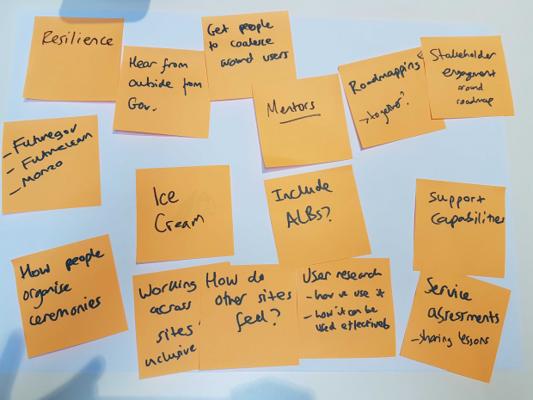 Resilience
Hear from
outside from
Gov.
Get people
to coalesce
around users
Mentors
Roadmapping
Stakeholder
engagement
around
roadmap
- Futuregov
- Futurelearn
- Monzo
Ice
Cream
Include
ALBs?
Support
Capabilities
How people
organise
ceremonies
Working
across
sites
inclusive
How do
other sites
feel?
User research
- how we use it
- how it can be
used effectively
Service
assessments
- sharing lessons